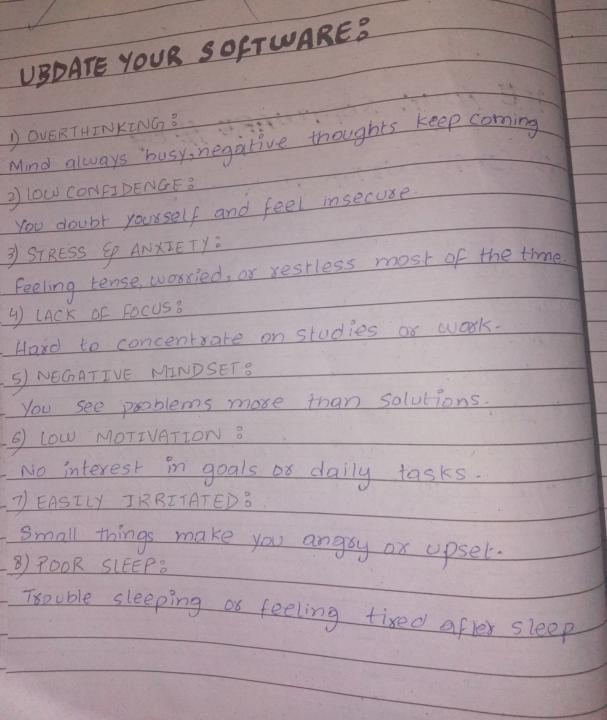 UBDATE YOUR SOFTWARE:
1) OVERTHINKING:
Mind always busy, negative thoughts keep coming
2) LOW CONFIDENGE:
You doubt yourself and feel insecure.
3) STRESS & ANXIETY:
Feeling tense, worried, or restless most of the time.
4) LACK OF FOCUS:
Hard to concentrate on studies or work.
5) NEGATIVE MINDSET:
You see problems more than solutions.
6) LOW MOTIVATION:
No interest in goals or daily tasks.
7) EASILY IRRITATED:
Small things make you angry or upset.
8) POOR SLEEP:
Trouble sleeping or feeling tired after sleep